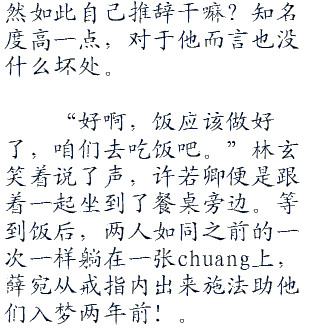 然如此自己推辞干嘛？知名
度高一点，对于他而言也没
什么坏处。
“好啊，饭应该做好
了，咱们去吃饭吧。”林玄
笑着说了声，许若卿便是跟
着一起坐到了餐桌旁边。等
到饭后，两人如同之前的一
次一样躺在一张chuang上，
薛宛从戒指内出来施法助他
们入梦两年前！。